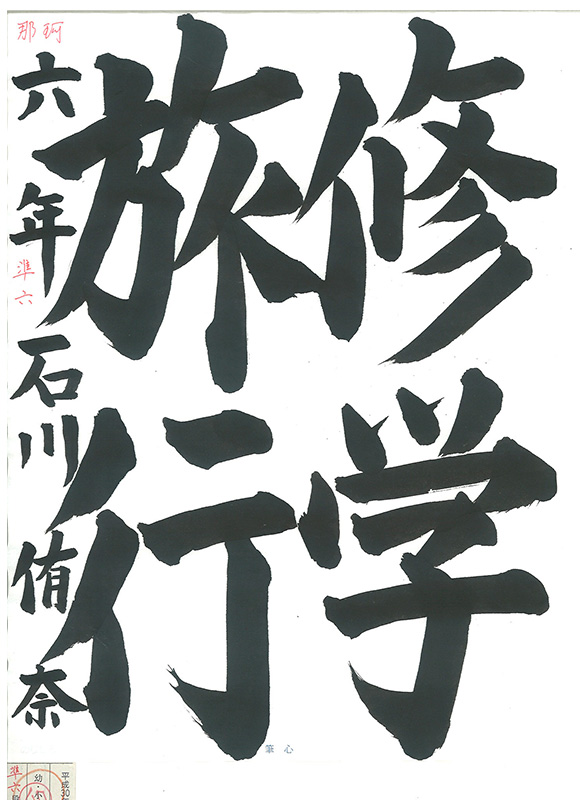 修学
旅行
六年 石川侑奈
那珂
準六
筆心
平成30
幼・小
準六